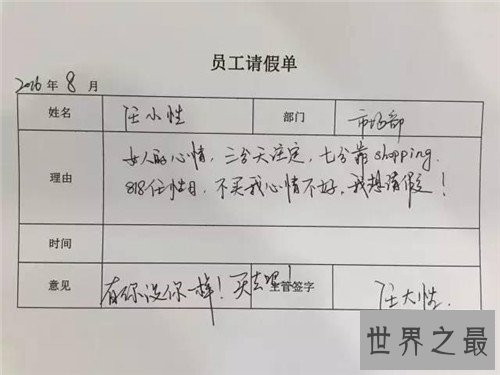 员工请假单
2016年8月
姓名 任小性 部门 市场部
理由 女人的心情，三分天注定，七分靠shopping.
818任性日，不买我心情不好，我想请假！
时间
意见 有你没你一样！买去吧！ 主管签字 任大性.
世界之最